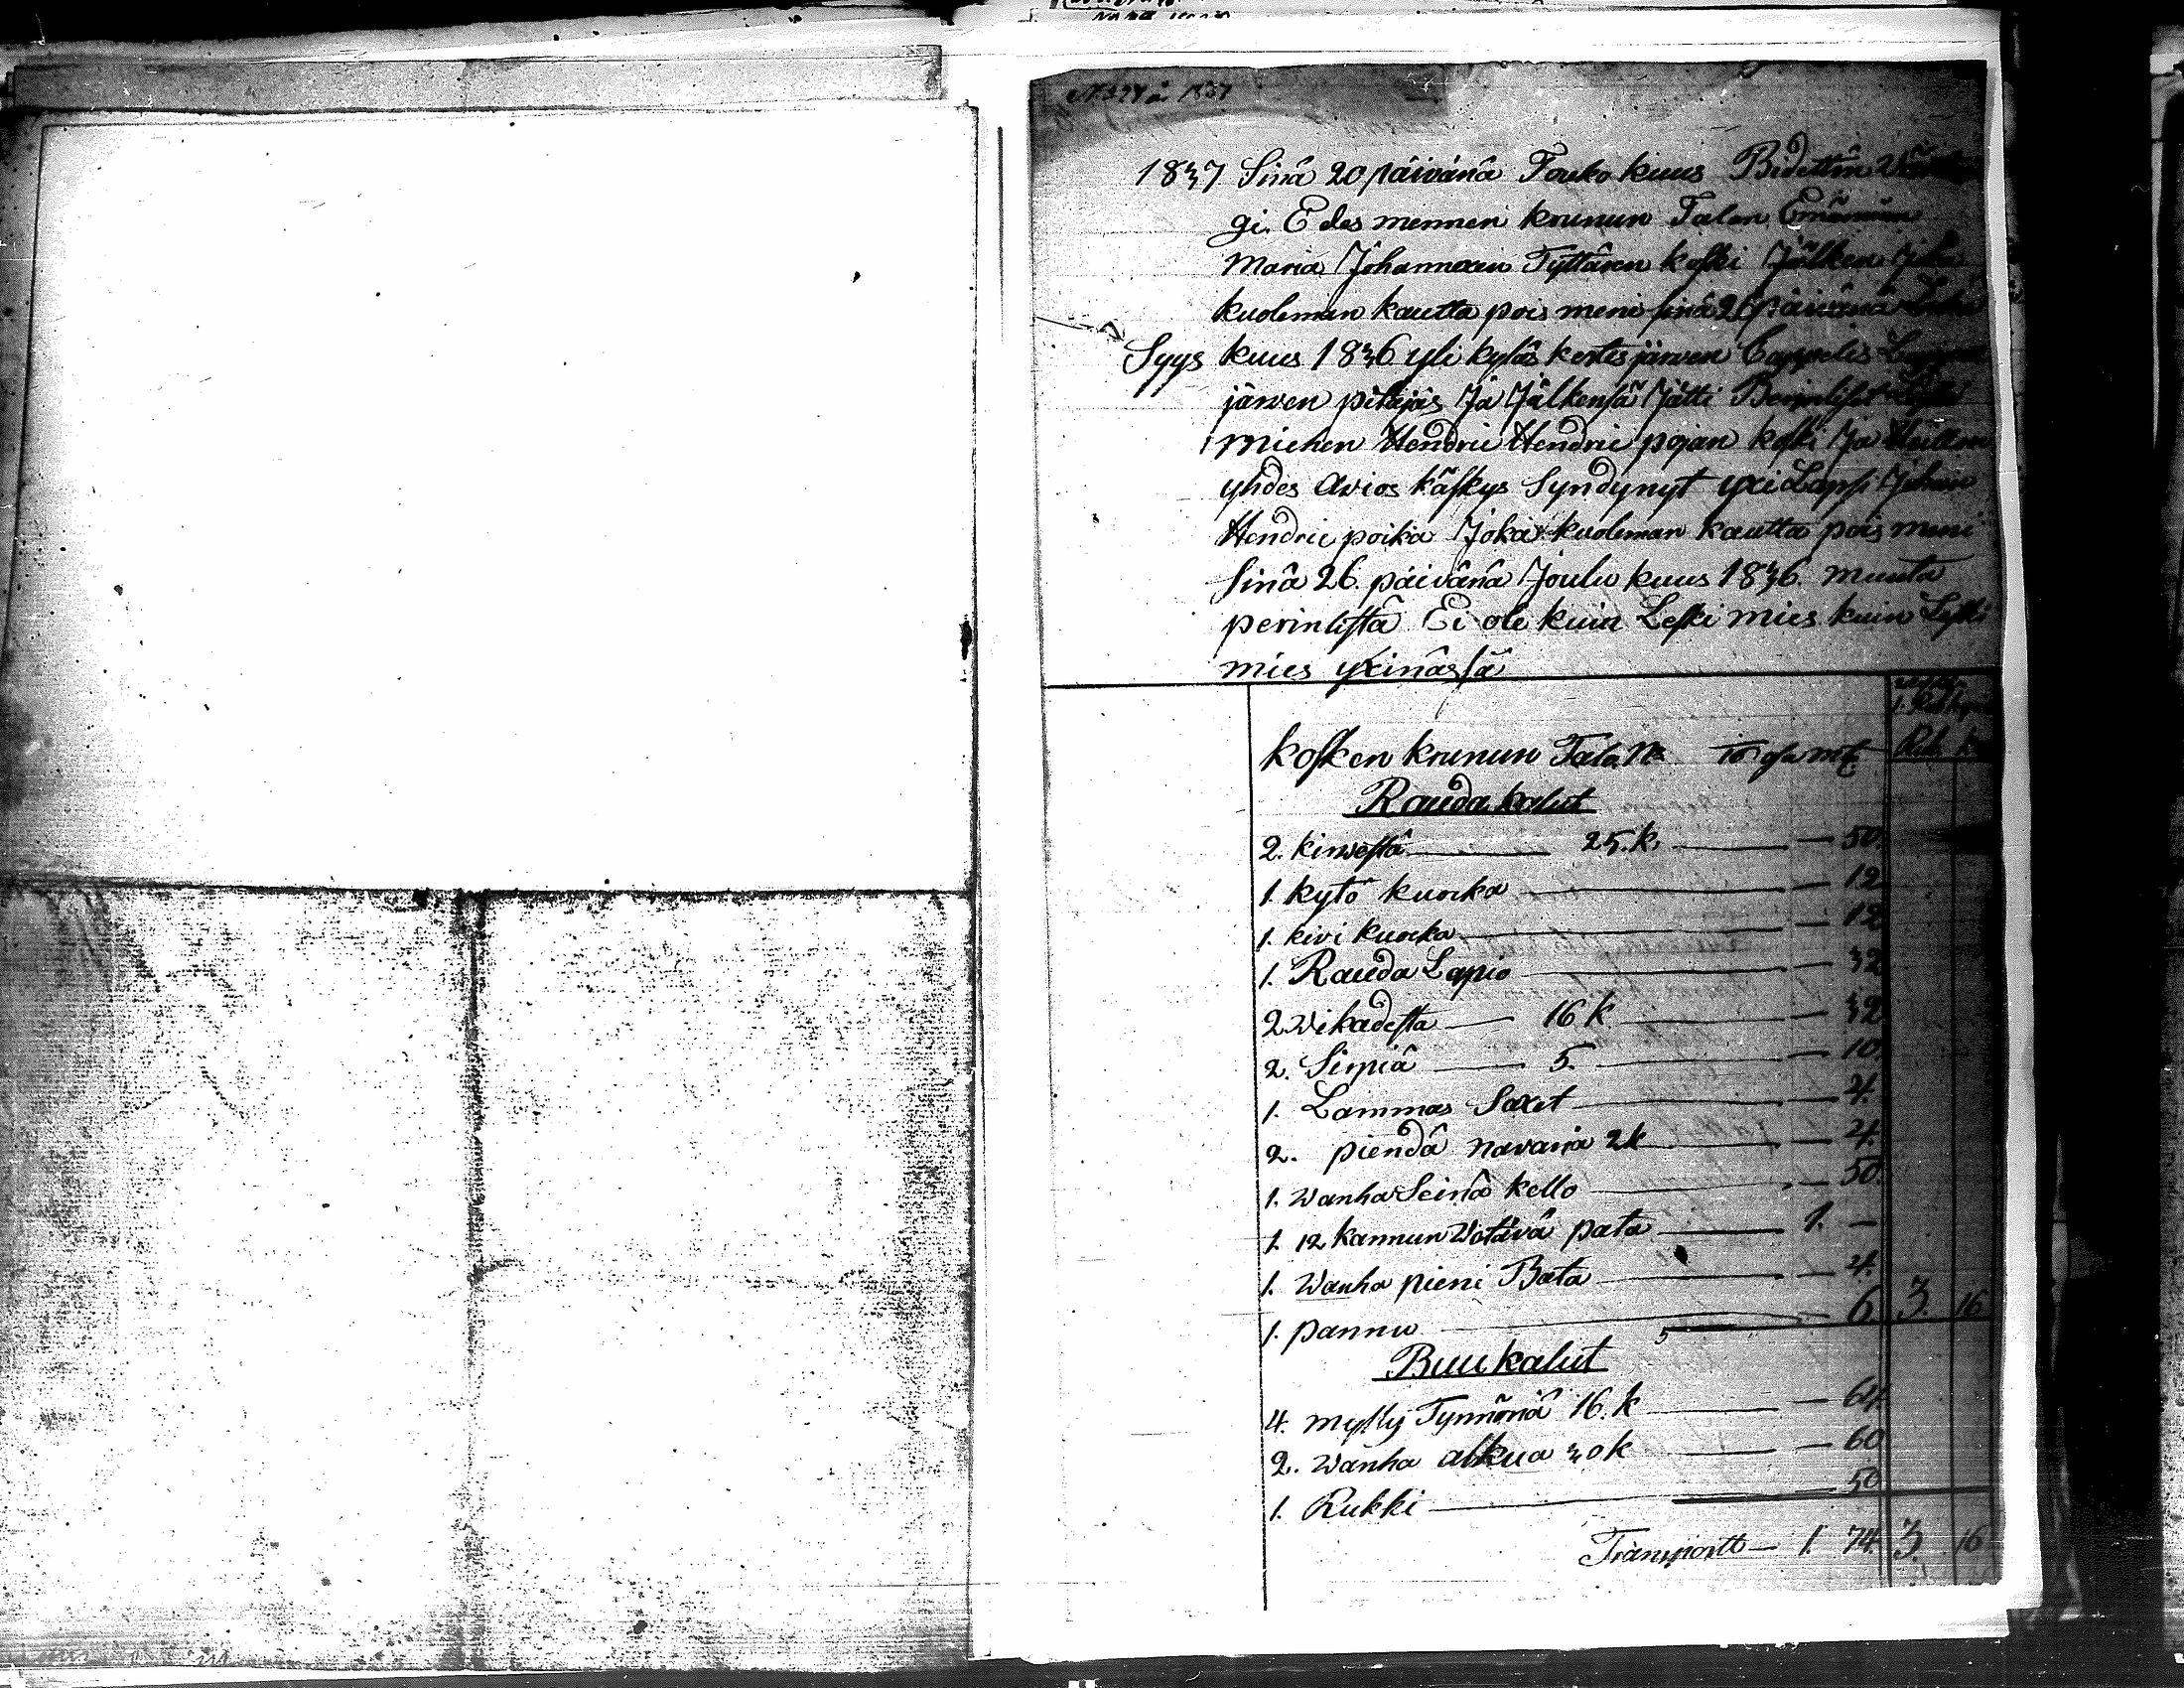 1837 Sinä 20 päivänä Touko kuus Bidettin
gi. Edes mennen krunun Talon Emännän
Maria Johannexen Tyttären koski Jälken Joka
kuoleman kautta pois meni sinä 26 päivänä
Syys kuus 1836 yli kyläs kortesjärven Cappelis
järven pitäjäs Ja Jälkensä Jätti Perinliset Leski
miehen Hendric Hendric pojan koski Ja
yhdes Avios käskys Syndynyt yxi Lapsi Johan
Hendric poika Joka kuoleman kautta pois meni
Sinä 26 päivänä Joulu kuus 1836. muuta
perinlistä Ei ole kuin Leski mies kuin Leski
mies yxinässä
kosken krunun Talo No mt.
Rub. k
Rauda kalut
2. kirwestä 25. k. 50.
1. kytö kuocka 12
1. kivi kuocka 12
1. Rauda Lapio 32
2 wikadesta 16 k 32
2. Sirpiä 5. 10.
1. Lammas Saxet 4.
2. piendä navaria 2 k 4.
1. wanha Seinä kello 50.
1. 12 kannun Wotävä pata 1. —
1. Wanha pieni Bata 4.
1. pannu 6 3. 16
Buu kalut
4. mylly Tynnöriä 16. k 64.
2. wanha alkua 30 k 60
1. Rukki 50
Transportt — 1. 74. 3. 16